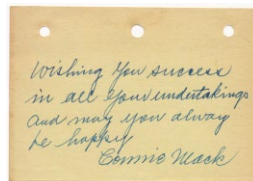 Wishing you success
in all your undertakings
and may you alway
be happy
Connie Mack